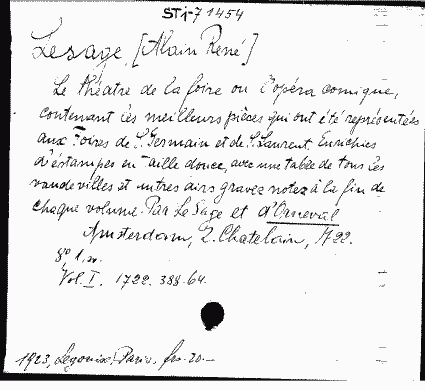 STi-7 1454
Lesage, [Alain René]
Le théatre de la foire ou l'opéra comique,
contenant les meilleurs pièces qui ont été représentées
aux Foires de S. Germain et de S. Laurent, Enrichies
d'éstampes en Taille douce, avec une table de tous les
vaudevilles et autres airs gravez notez à la fin de
chaque volume. Par Le Sage et d'Orneval
Amsterdam, Z. Chatelain, 1722.
8° 
Vol. I. 1722. 388.64.
1923, Paris, frs. 20.—